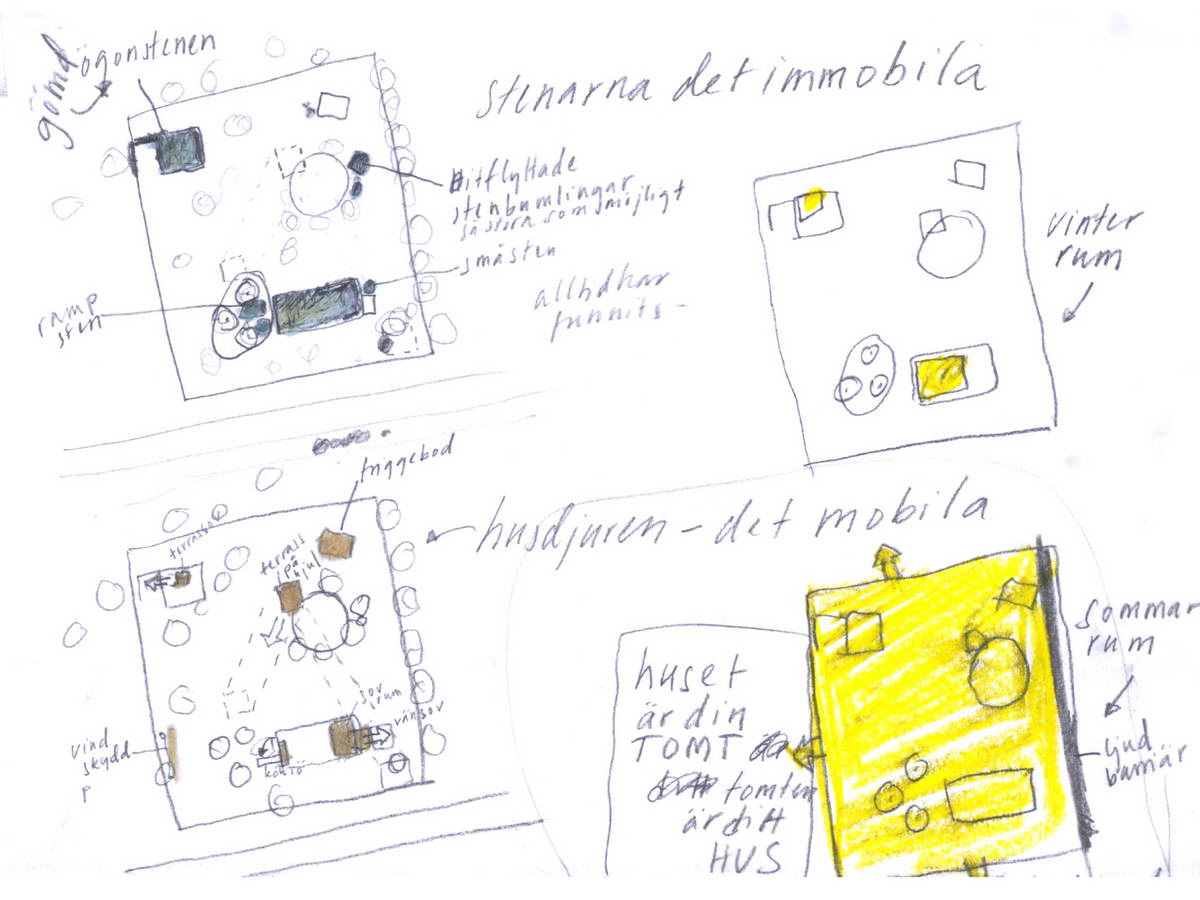 gömd
ögonstenen
stenarna det immobila
hitflyttade
stenbumlingar
så stora som möjligt
småsten
ramp
sten
alltid har
funnits –
vinter
rum
friggebod
husdjuren – det mobila
terrass
terrass
på
hjul
sov
rum
vind
skydd
sommar
rum
ljud
barriär
huset
är din
TOMT
tomten
är ditt
HUS